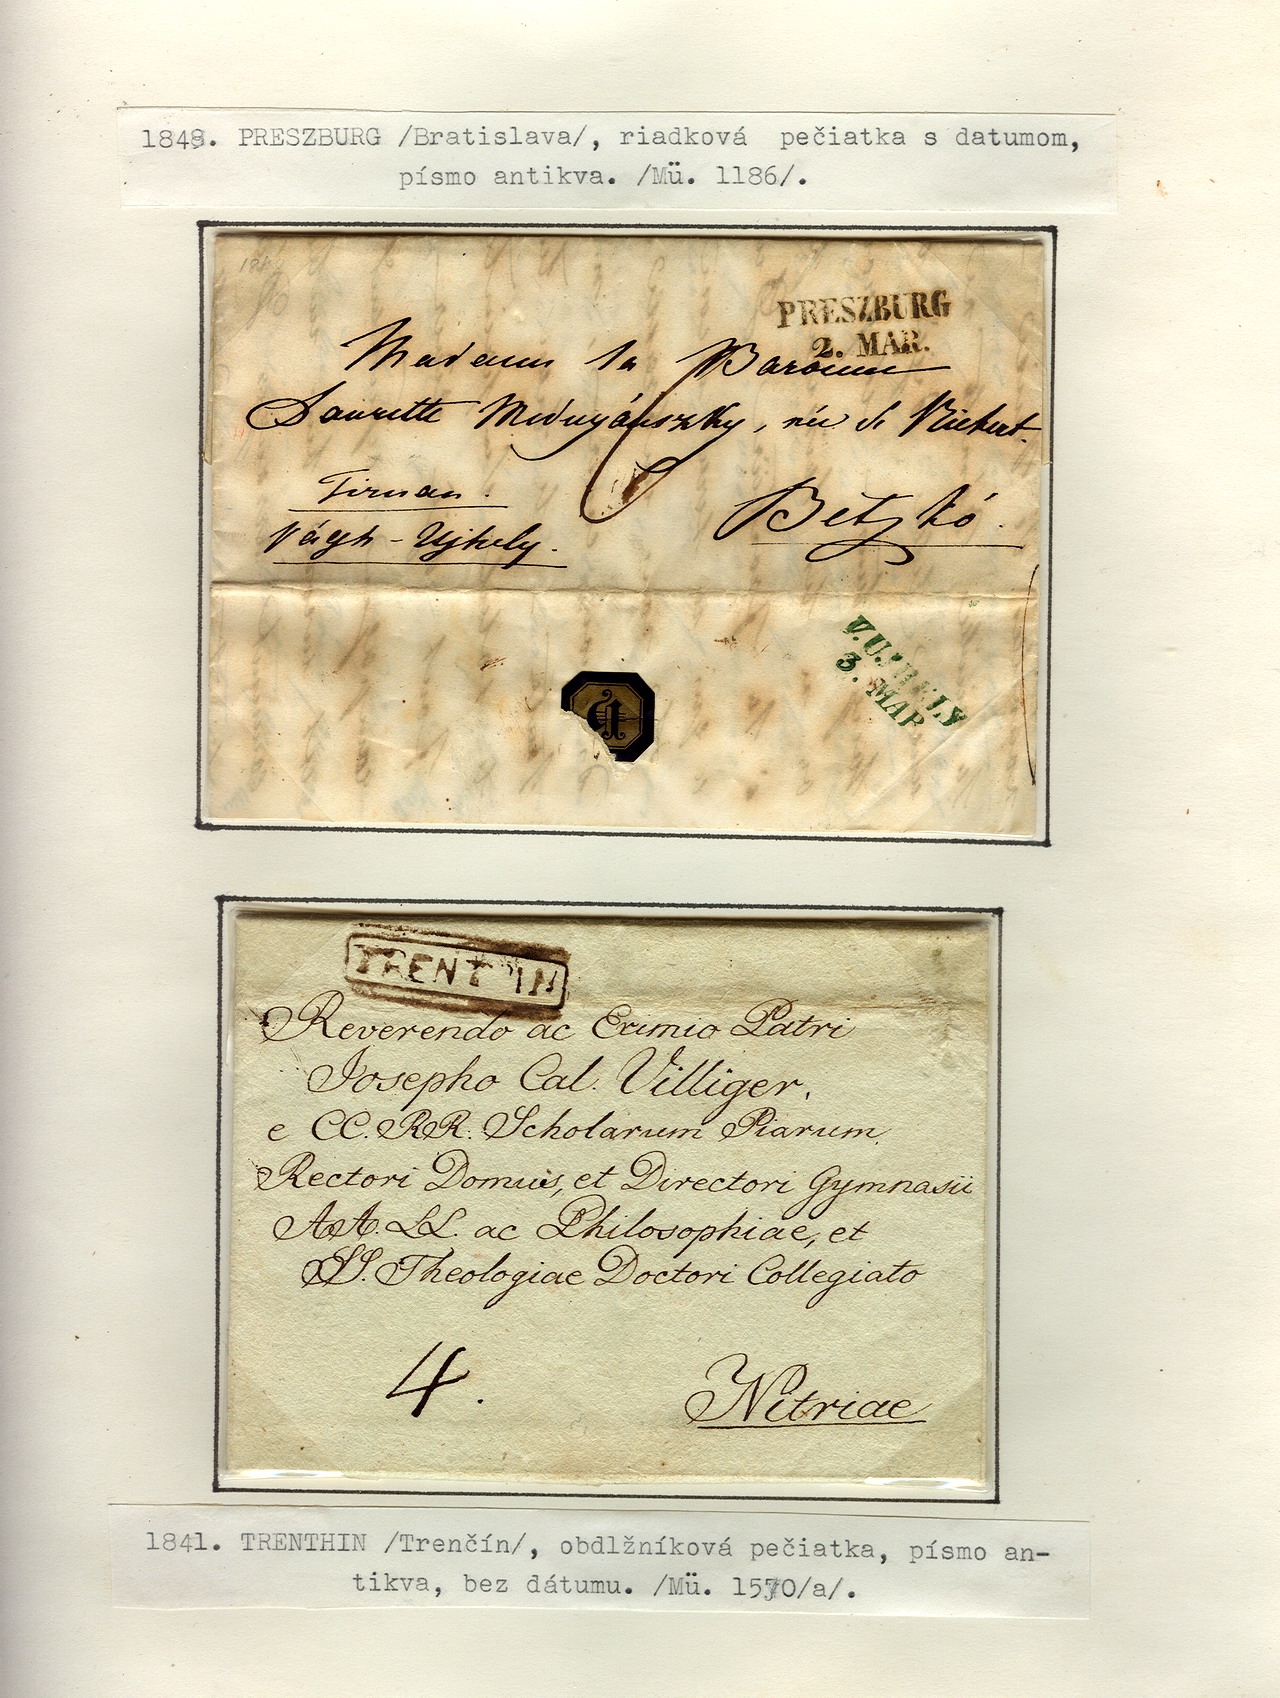 1848. PRESZBURG /Bratislava/, riadková pečiatka s datumom,
písmo antikva. /Mü. 1186/.
PRESZBURG
2. MAR.
Madame la Baronne
Laurette Mednyánszky, née de Rickert
Tirnau.
Vágh-Ujhely.
Betzkó.
V. UJHELY
3. MAR
TRENT IN
Reverendo ac Eximio Patri
Josepho Cal. Villiger,
e CC. RR. Scholarum Piarum
Rectori Domus, et Directori Gymnasii
AA. LL. ac Philosophiae, et
SS. Theologiae Doctori Collegiato
4.
Nitriae
1841. TRENTHIN /Trenčín/, obdlžníková pečiatka, písmo an-
tikva, bez dátumu. /Mü. 1570/a/.